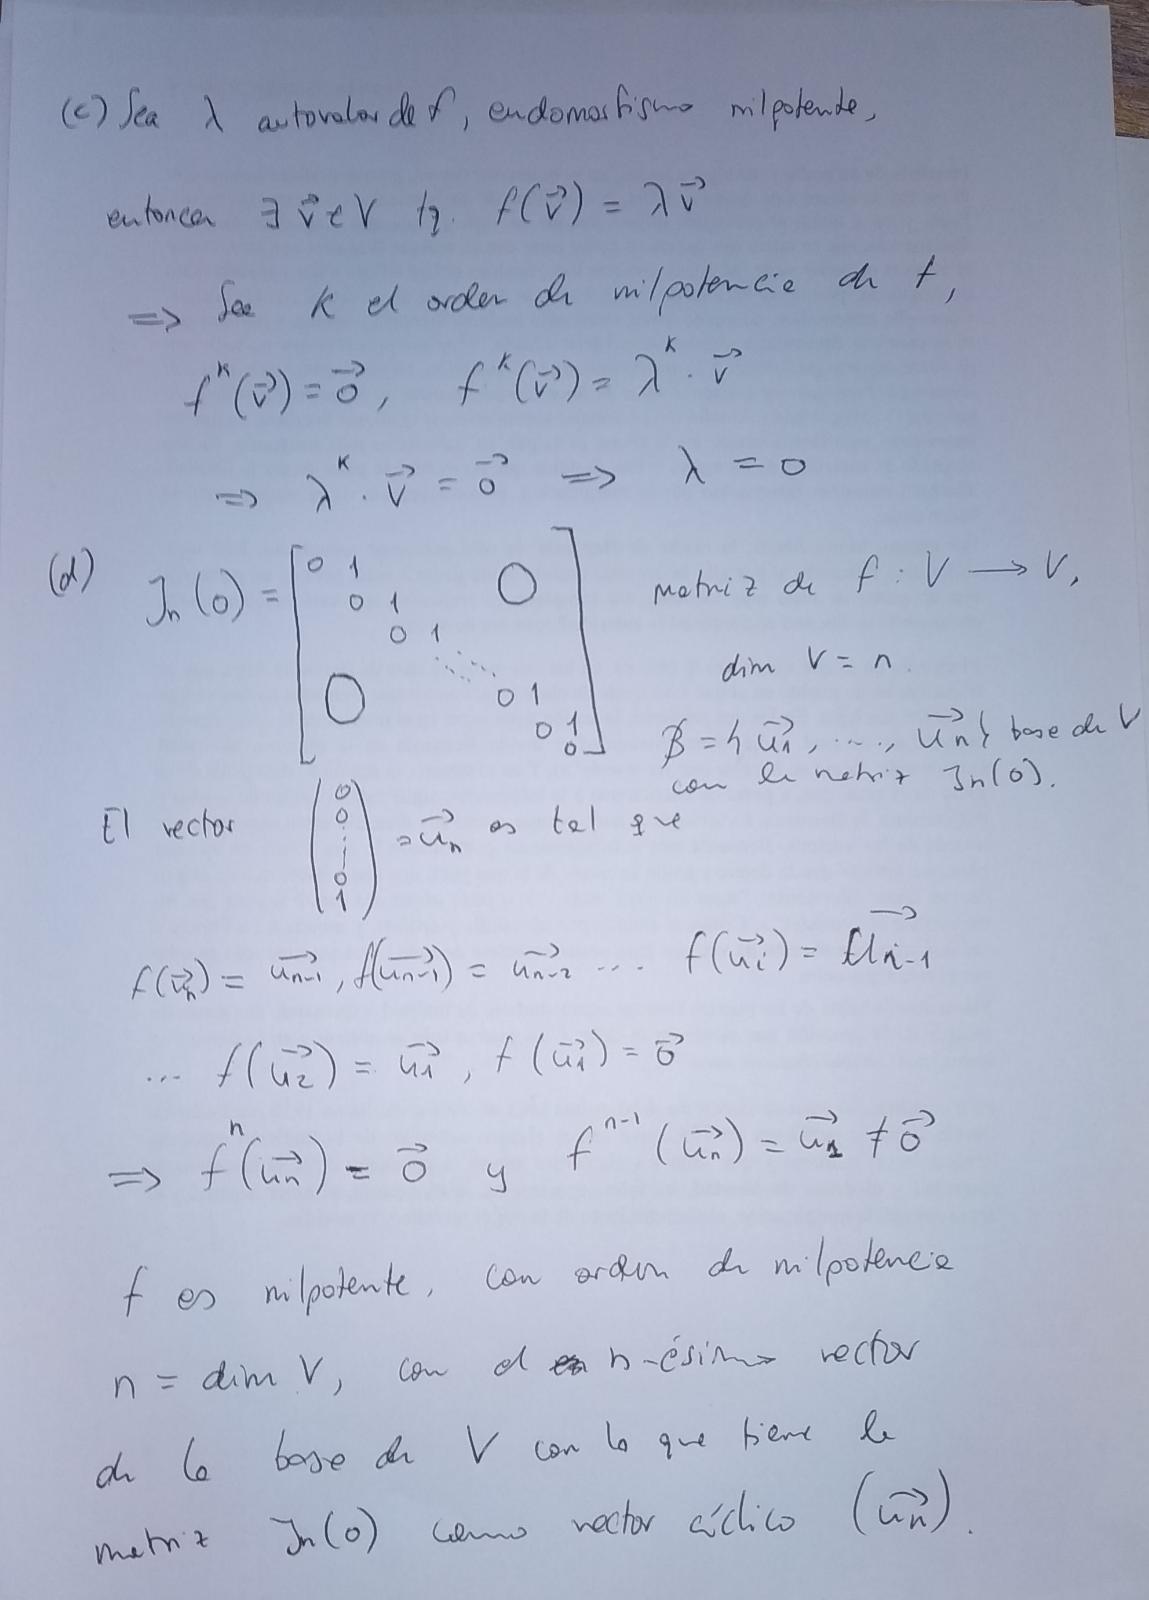 (c) Sea λ autovalor de f, endomorfismo nilpotente,
entonces ∃ v⃗ ∈ V tq. f(v⃗) = λv⃗
=> Sea K el orden de nilpotencia de f,
f^K(v⃗) = 0⃗, f^K(v⃗) = λ^K · v⃗
=> λ^K · v⃗ = 0⃗ => λ = 0
(d) Jn(0) = [0 1 0 1 0 1 ⋱ ⋱ 0 1 0 1 0] matriz de f : V → V,
dim V = n
B = {u1⃗, ..., un⃗} base de V
con la matriz Jn(0).
El vector (0 0 ⋮ 0 1) = un⃗ es tal que
f(un⃗) = un-1⃗, f(un-1⃗) = un-2⃗ ... f(ui⃗) = ui-1⃗
... f(u2⃗) = u1⃗, f(u1⃗) = 0⃗
=> f^n(un⃗) = 0⃗ y f^n-1(un⃗) = u1⃗ ≠ 0⃗
f es nilpotente, con orden de nilpotencia
n = dim V, con el n-ésimo vector
de la base de V con la que tiene la
matriz Jn(0) como vector cíclico (un⃗).